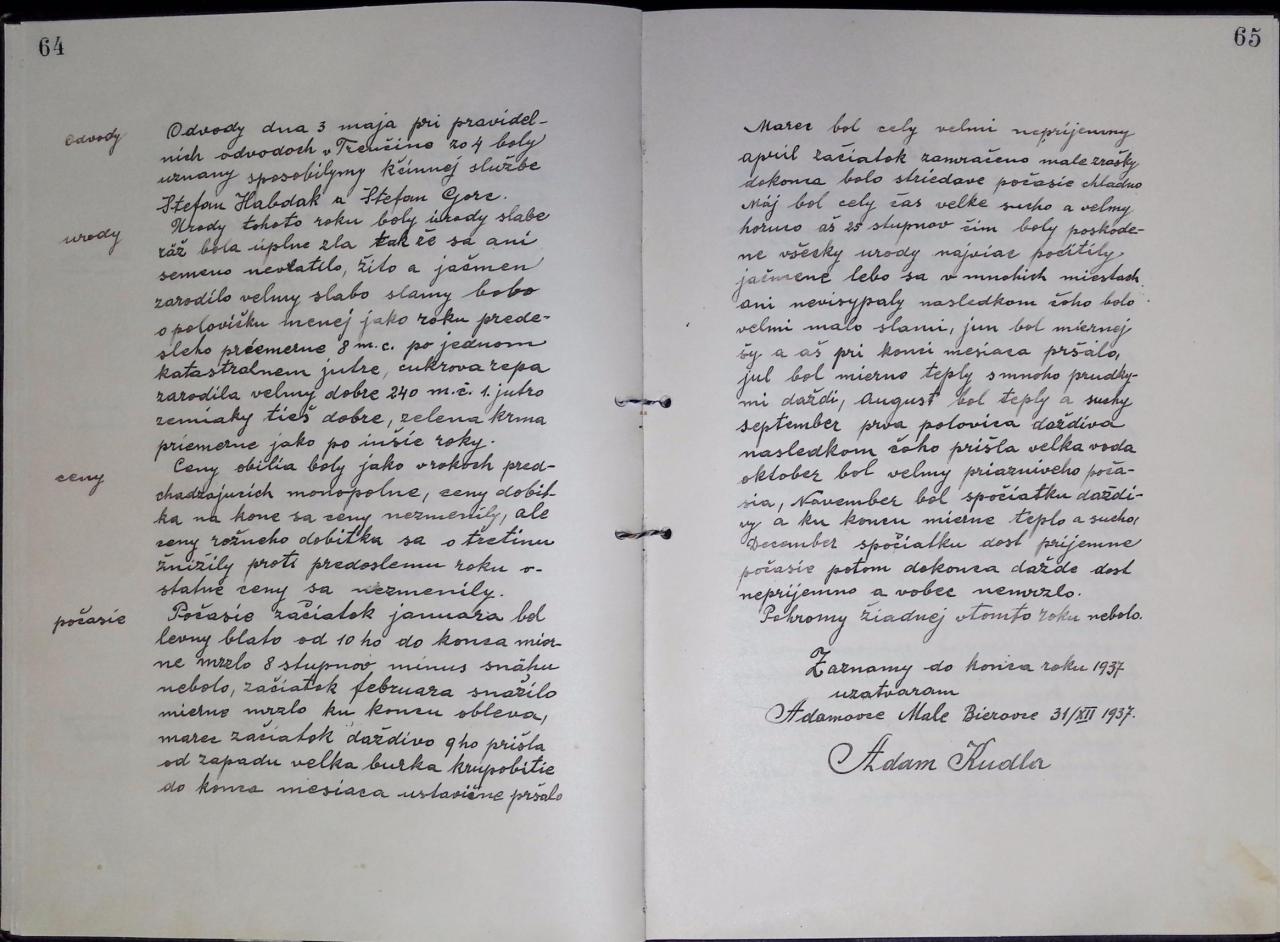 64
Odvody
Odvody dna 3 maja pri pravidel-
nich odvodoch v Trenčine zo 4 boly
uznany sposobilymy kčinnej službe
Štefan Habdak a Štefan Gorc.
urody
Urody tohoto roku boly urody slabe
ráž bola úplne zla tak že sa ani
semeno nevratilo, žito a jačmen
zarodilo velmy slabo slamy bobo
o polovičku menej jako roku prede-
sleho priemerne 8 m.c. po jednom
katastralnem jutre, cukrova repa
zarodila velmy dobre 240 m.č. 1. jutro
zemiaky tiež dobre, zelena krma
priemerne jako po inšie roky.
ceny
Ceny obilia boly jako v rokoch pred-
chadzajucich monopolne, ceny dobit-
ka na kone sa ceny nezmenily, ale
ceny rožneho dobitka sa o tretinu
žnižily proti predoslemu roku o-
statné ceny sa nezmenily.
počasie
Počasie začiatok januara bol
levny blato od 10 ho do konca mier-
ne mrzlo 8 stupnov minus snähu
nebolo, začiatok februara snažilo
mierne mrzlo ku koncu obleva,
marec začiatok daždivo 9 ho prišla
od zapadu velka burka krupobitie
do konca mesiaca ustavične pršalo
65
Marec bol cely velmi neprijemny
april začiatok zamračeno male zrašky
dokonca bolo striedave počasie chladno
Máj bol cely čas velke sucho a velmy
horuco aš 25 stupnov čim boly poskode-
ne všecky urody najviac pocitily
jačmene lebo sa v mnohich miestach
ani nevisypaly nasledkom čoho bolo
velmi malo slami, jun bol miernej
šy a aš pri konci mesiaca pršalo,
jul bol mierno teply s mnoho prudky-
mi daždi, August bol teply a suchy
september prva polovica daždiva
nasledkom čoho prišla velka voda
oktober bol velmy priazniveho poča-
sia, November bol spočiatku daždi-
vy a ku koncu mierne teplo a sucho,
December spočiatku dost prijemne
počasie potom dokonca dažde dost
neprijemno a vobec nemrzlo.
Pohromy žiadnej v tomto roku nebolo.
Zaznamy do konca roku 1937
uzatvaram
Adamovce Male Bierovce 31/XII 1937.
Adam Kudla